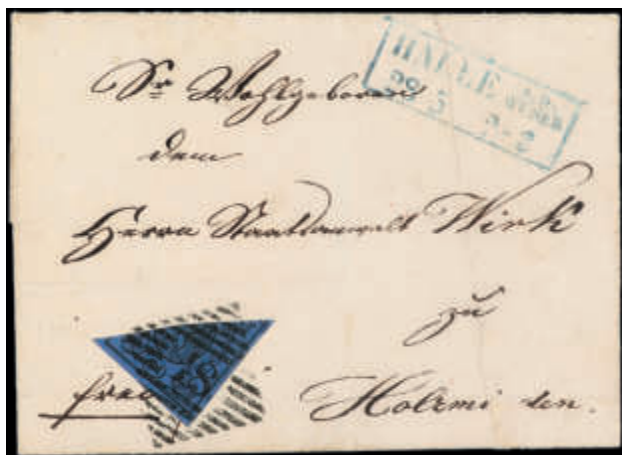 HALLE
28 5 2-3
Sr. Wohlgeboren
dem
Herrn Staatsanwalt Wirk
zu
fran
Holzmi den.